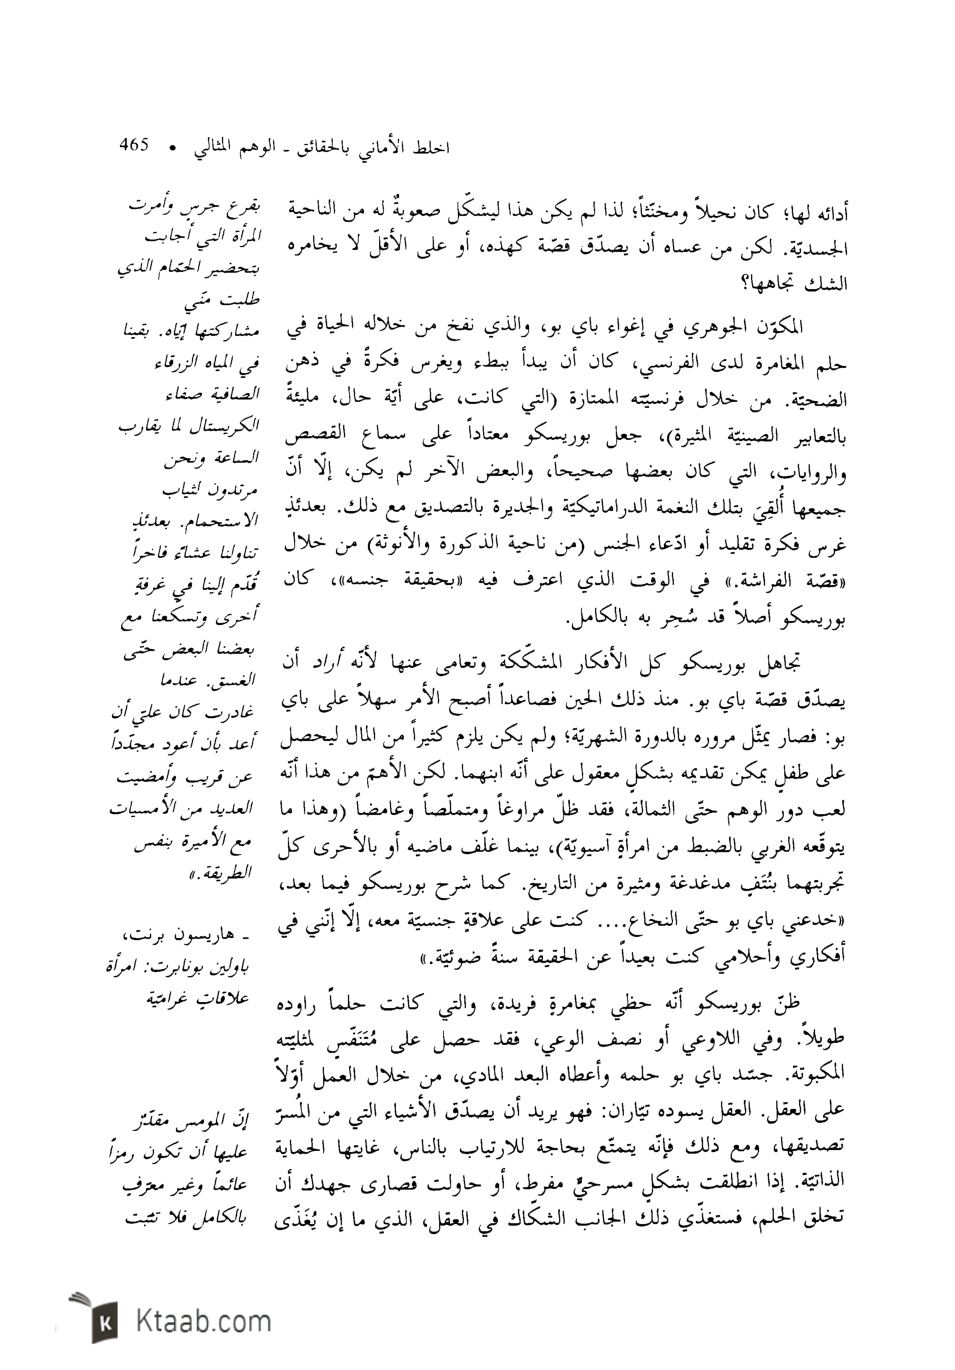 اخلط الأماني بالحقائق ـ الوهم المثالي • 465
أدائه لها؛ كان نحيلاً ومخنّثاً؛ لذا لم يكن هذا ليشكّل صعوبةٌ له من الناحية
الجسديّة. لكن من عساه أن يصدّق قصّة كهذه، أو على الأقلّ لا يخامره
الشك تجاهها؟
المكوّن الجوهري في إغواء باي بو، والذي نفخ من خلاله الحياة في
حلم المغامرة لدى الفرنسي، كان أن يبدأ ببطء ويغرس فكرةً في ذهن
الضحيّة. من خلال فرنسيّته الممتازة (التي كانت، على أيّة حال، مليئةً
بالتعابير الصينيّة المثيرة)، جعل بوريسكو معتاداً على سماع القصص
والروايات، التي كان بعضها صحيحاً، والبعض الآخر لم يكن، إلّا أنّ
جميعها أُلقِيَ بتلك النغمة الدراماتيكيّة والجديرة بالتصديق مع ذلك. بعدئذٍ
غرس فكرة تقليد أو ادّعاء الجنس (من ناحية الذكورة والأنوثة) من خلال
«قصّة الفراشة.» في الوقت الذي اعترف فيه «بحقيقة جنسه»، كان
بوريسكو أصلاً قد سُحِر به بالكامل.
تجاهل بوريسكو كل الأفكار المشكّكة وتعامى عنها لأنّه أراد أن
يصدّق قصّة باي بو. منذ ذلك الحين فصاعداً أصبح الأمر سهلاً على باي
بو: فصار يمثّل مروره بالدورة الشهريّة؛ ولم يكن يلزم كثيراً من المال ليحصل
على طفلٍ يمكن تقديمه بشكلٍ معقول على أنّه ابنهما. لكن الأهمّ من هذا أنّه
لعب دور الوهم حتّى الثمالة، فقد ظلّ مراوغاً ومتملّصاً وغامضاً (وهذا ما
يتوقّعه الغربي بالضبط من امرأةٍ آسيويّة)، بينما غلّف ماضيه أو بالأحرى كلّ
تجربتهما بنُتَفٍ مدغدغة ومثيرة من التاريخ. كما شرح بوريسكو فيما بعد،
«خدعني باي بو حتّى النخاع.... كنت على علاقةٍ جنسيّة معه، إلّا إنّني في
أفكاري وأحلامي كنت بعيداً عن الحقيقة سنةً ضوئيّة.»
ظنّ بوريسكو أنّه حظي بمغامرةٍ فريدة، والتي كانت حلماً راوده
طويلاً. وفي اللاوعي أو نصف الوعي، فقد حصل على مُتَنَفّسٍ لمثليّته
المكبوتة. جسّد باي بو حلمه وأعطاه البعد المادي، من خلال العمل أوّلاً
على العقل. العقل يسوده تيّاران: فهو يريد أن يصدّق الأشياء التي من المُسرّ
تصديقها، ومع ذلك فإنّه يتمتّع بحاجة للارتياب بالناس، غايتها الحماية
الذاتيّة. إذا انطلقت بشكلٍ مسرحيٍّ مفرط، أو حاولت قصارى جهدك أن
تخلق الحلم، فستغذّي ذلك الجانب الشكّاك في العقل، الذي ما إن يُغَذّى
بقرع جرسٍ وأمرت
المرأة التي أجابت
بتحضير الحمّام الذي
طلبت منّي
مشاركتها إيّاه. بقينا
في المياه الزرقاء
الصافية صفاء
الكريستال لما يقارب
الساعة ونحن
مرتدون لثياب
الاستحمام. بعدئذٍ
تناولنا عشاءً فاخراً
قُدّم إلينا في غرفةٍ
أخرى وتسكّعنا مع
بعضنا البعض حتّى
الغسق. عندما
غادرت كان عليّ أن
أعد بأن أعود مجدّداً
عن قريب وأمضيت
العديد من الأمسيات
مع الأميرة بنفس
الطريقة.»
ـ هاريسون برنت،
باولين بونابرت: امرأة
علاقاتٍ غراميّة
إنّ المومس مقدّرٌ
عليها أن تكون رمزاً
عائماً وغير معرّفٍ
بالكامل فلا تثبت
Ktaab.com